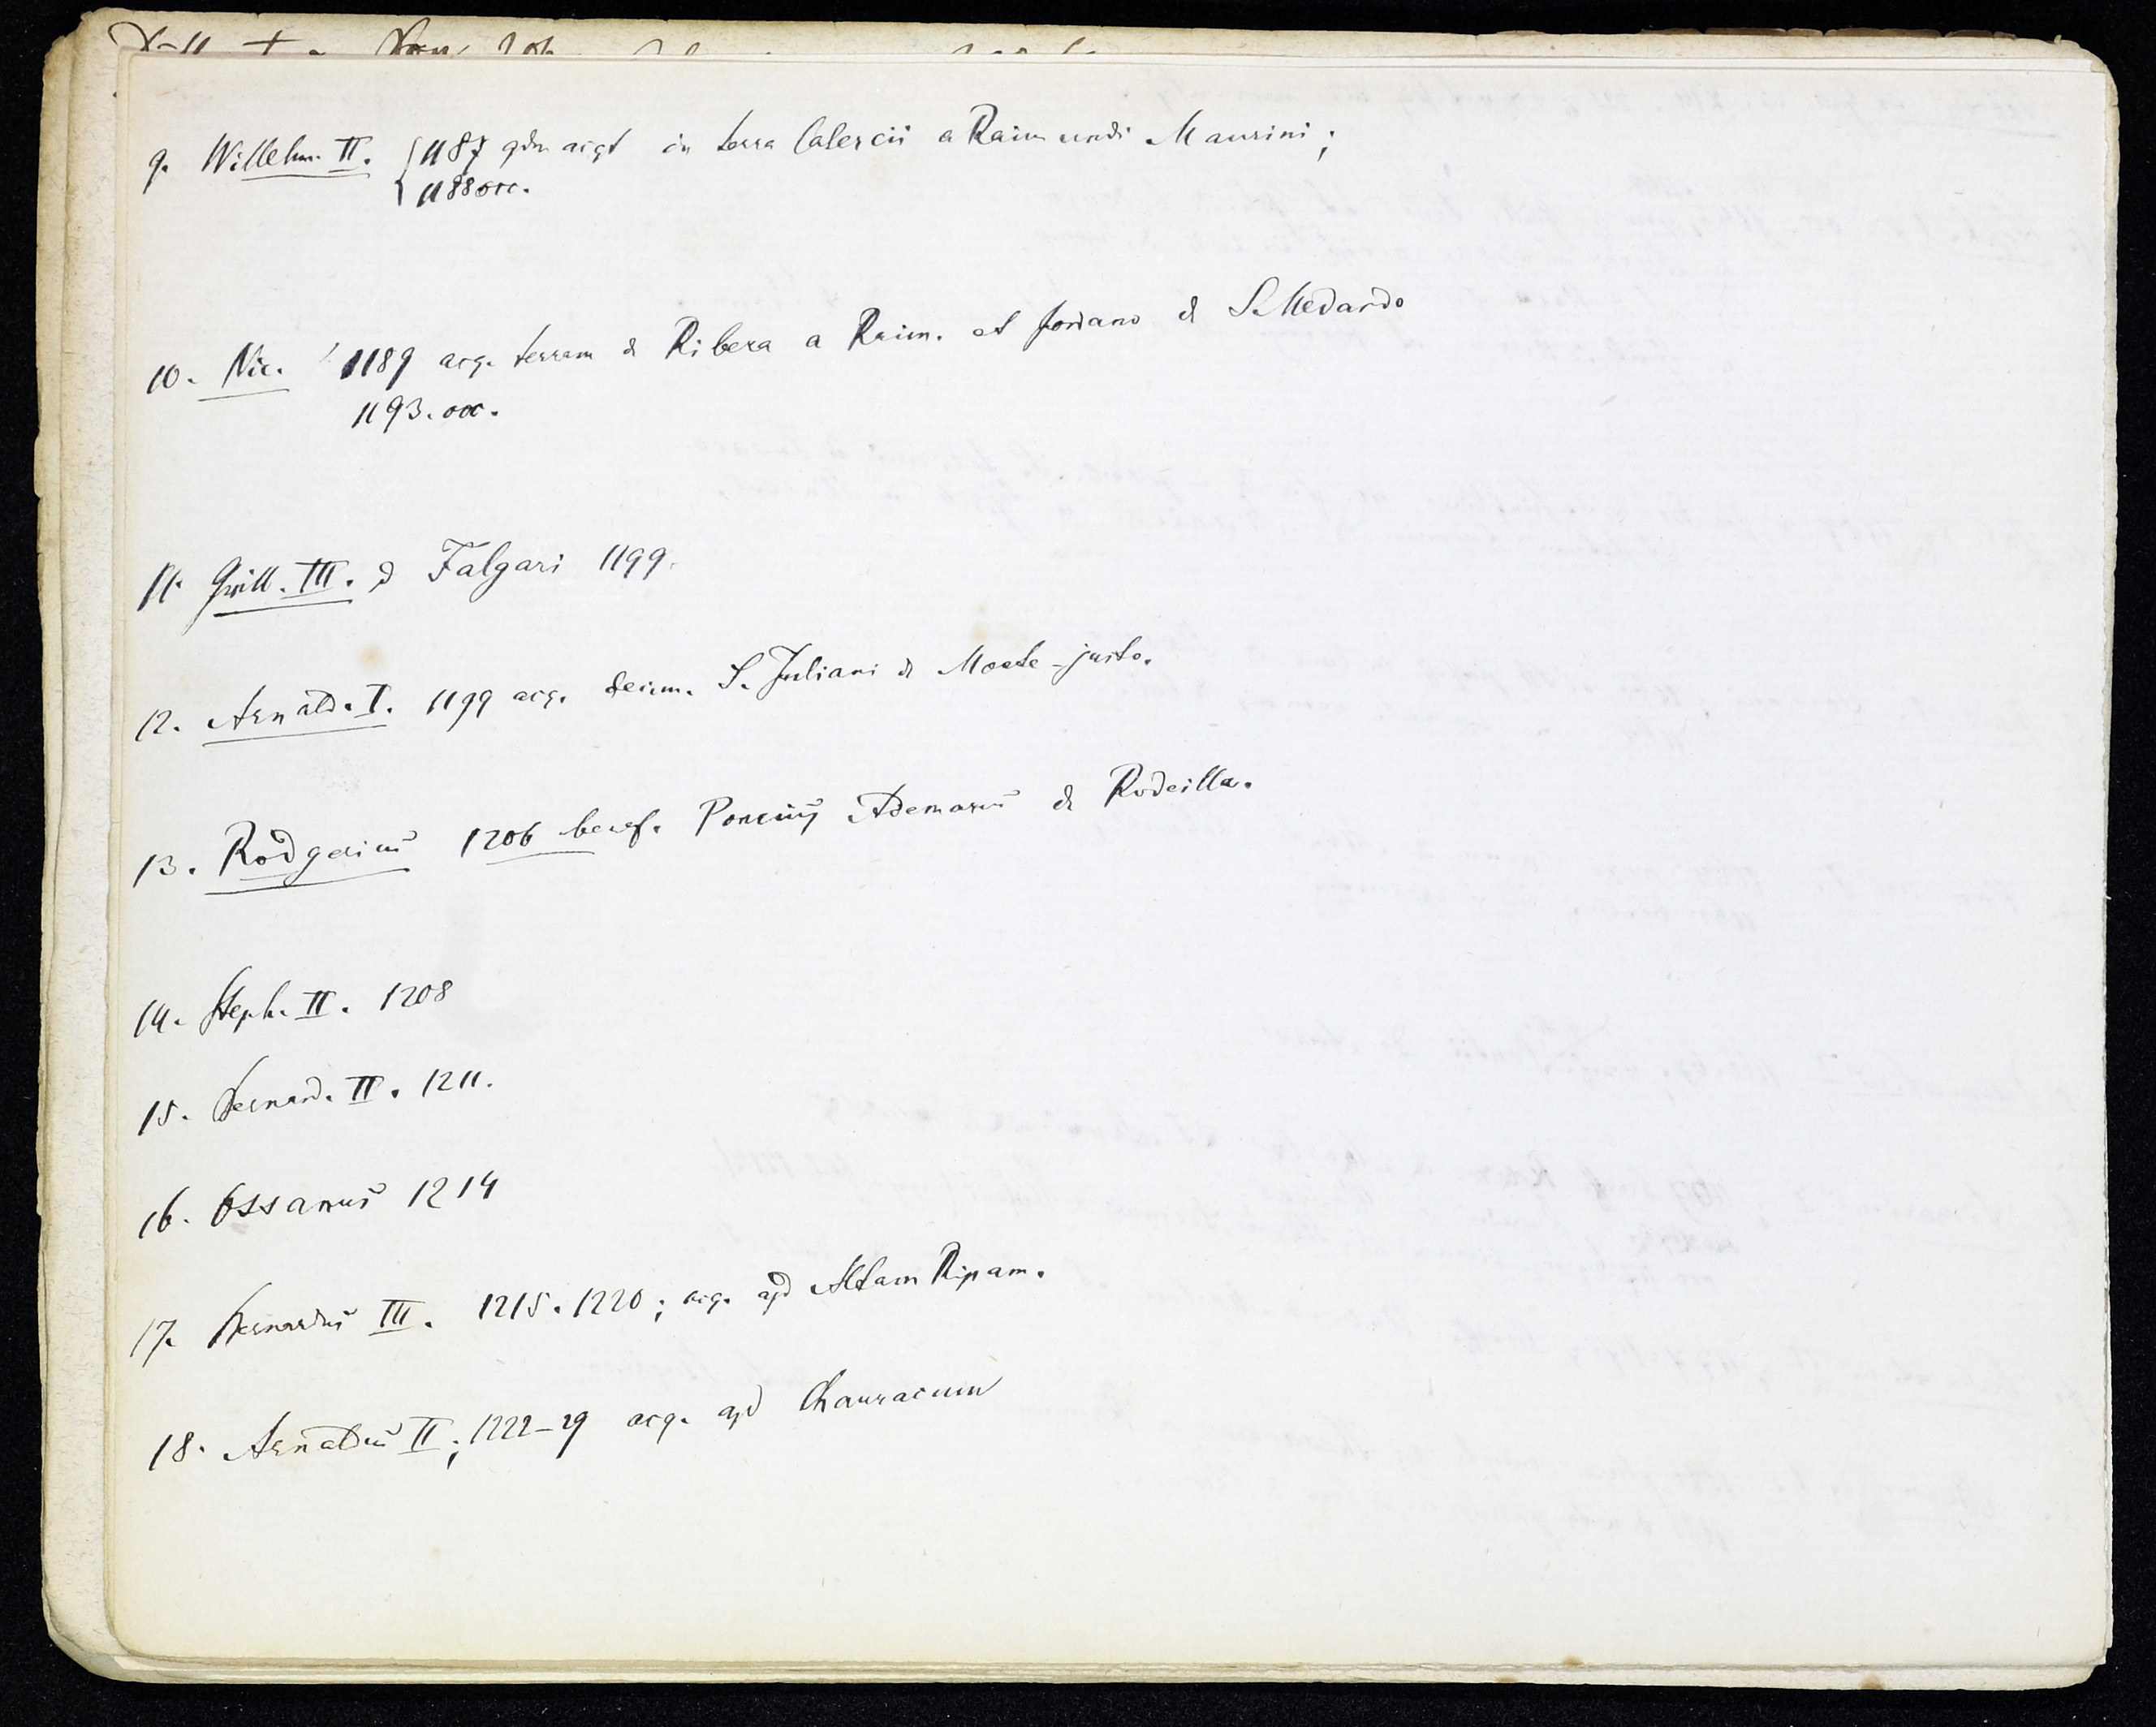 9. Willelm. II. 1187 qdm acqt in terra Calercii a Raimundi Maurini;
1188 occ.
10. Nic. 1189 acq. terram d Ribera a Raim. et Jordano d S. Medardo
1193. occ.
11. Guill. III. d Falgari 1199.
12. Arnald. I. 1199 acq. decim. S. Juliani d Monte-justo.
13. Rodgerius 1206 benef. Poncius Ademarus d Rodeilla.
14. Steph. II. 1208
15. Bernard. II. 1211.
16. Ossanus 1214
17. Bernardus III. 1215. 1220; acq. apd Altam Ripam.
18. Arnaldus II; 1222-29 acq. apd Chauracum